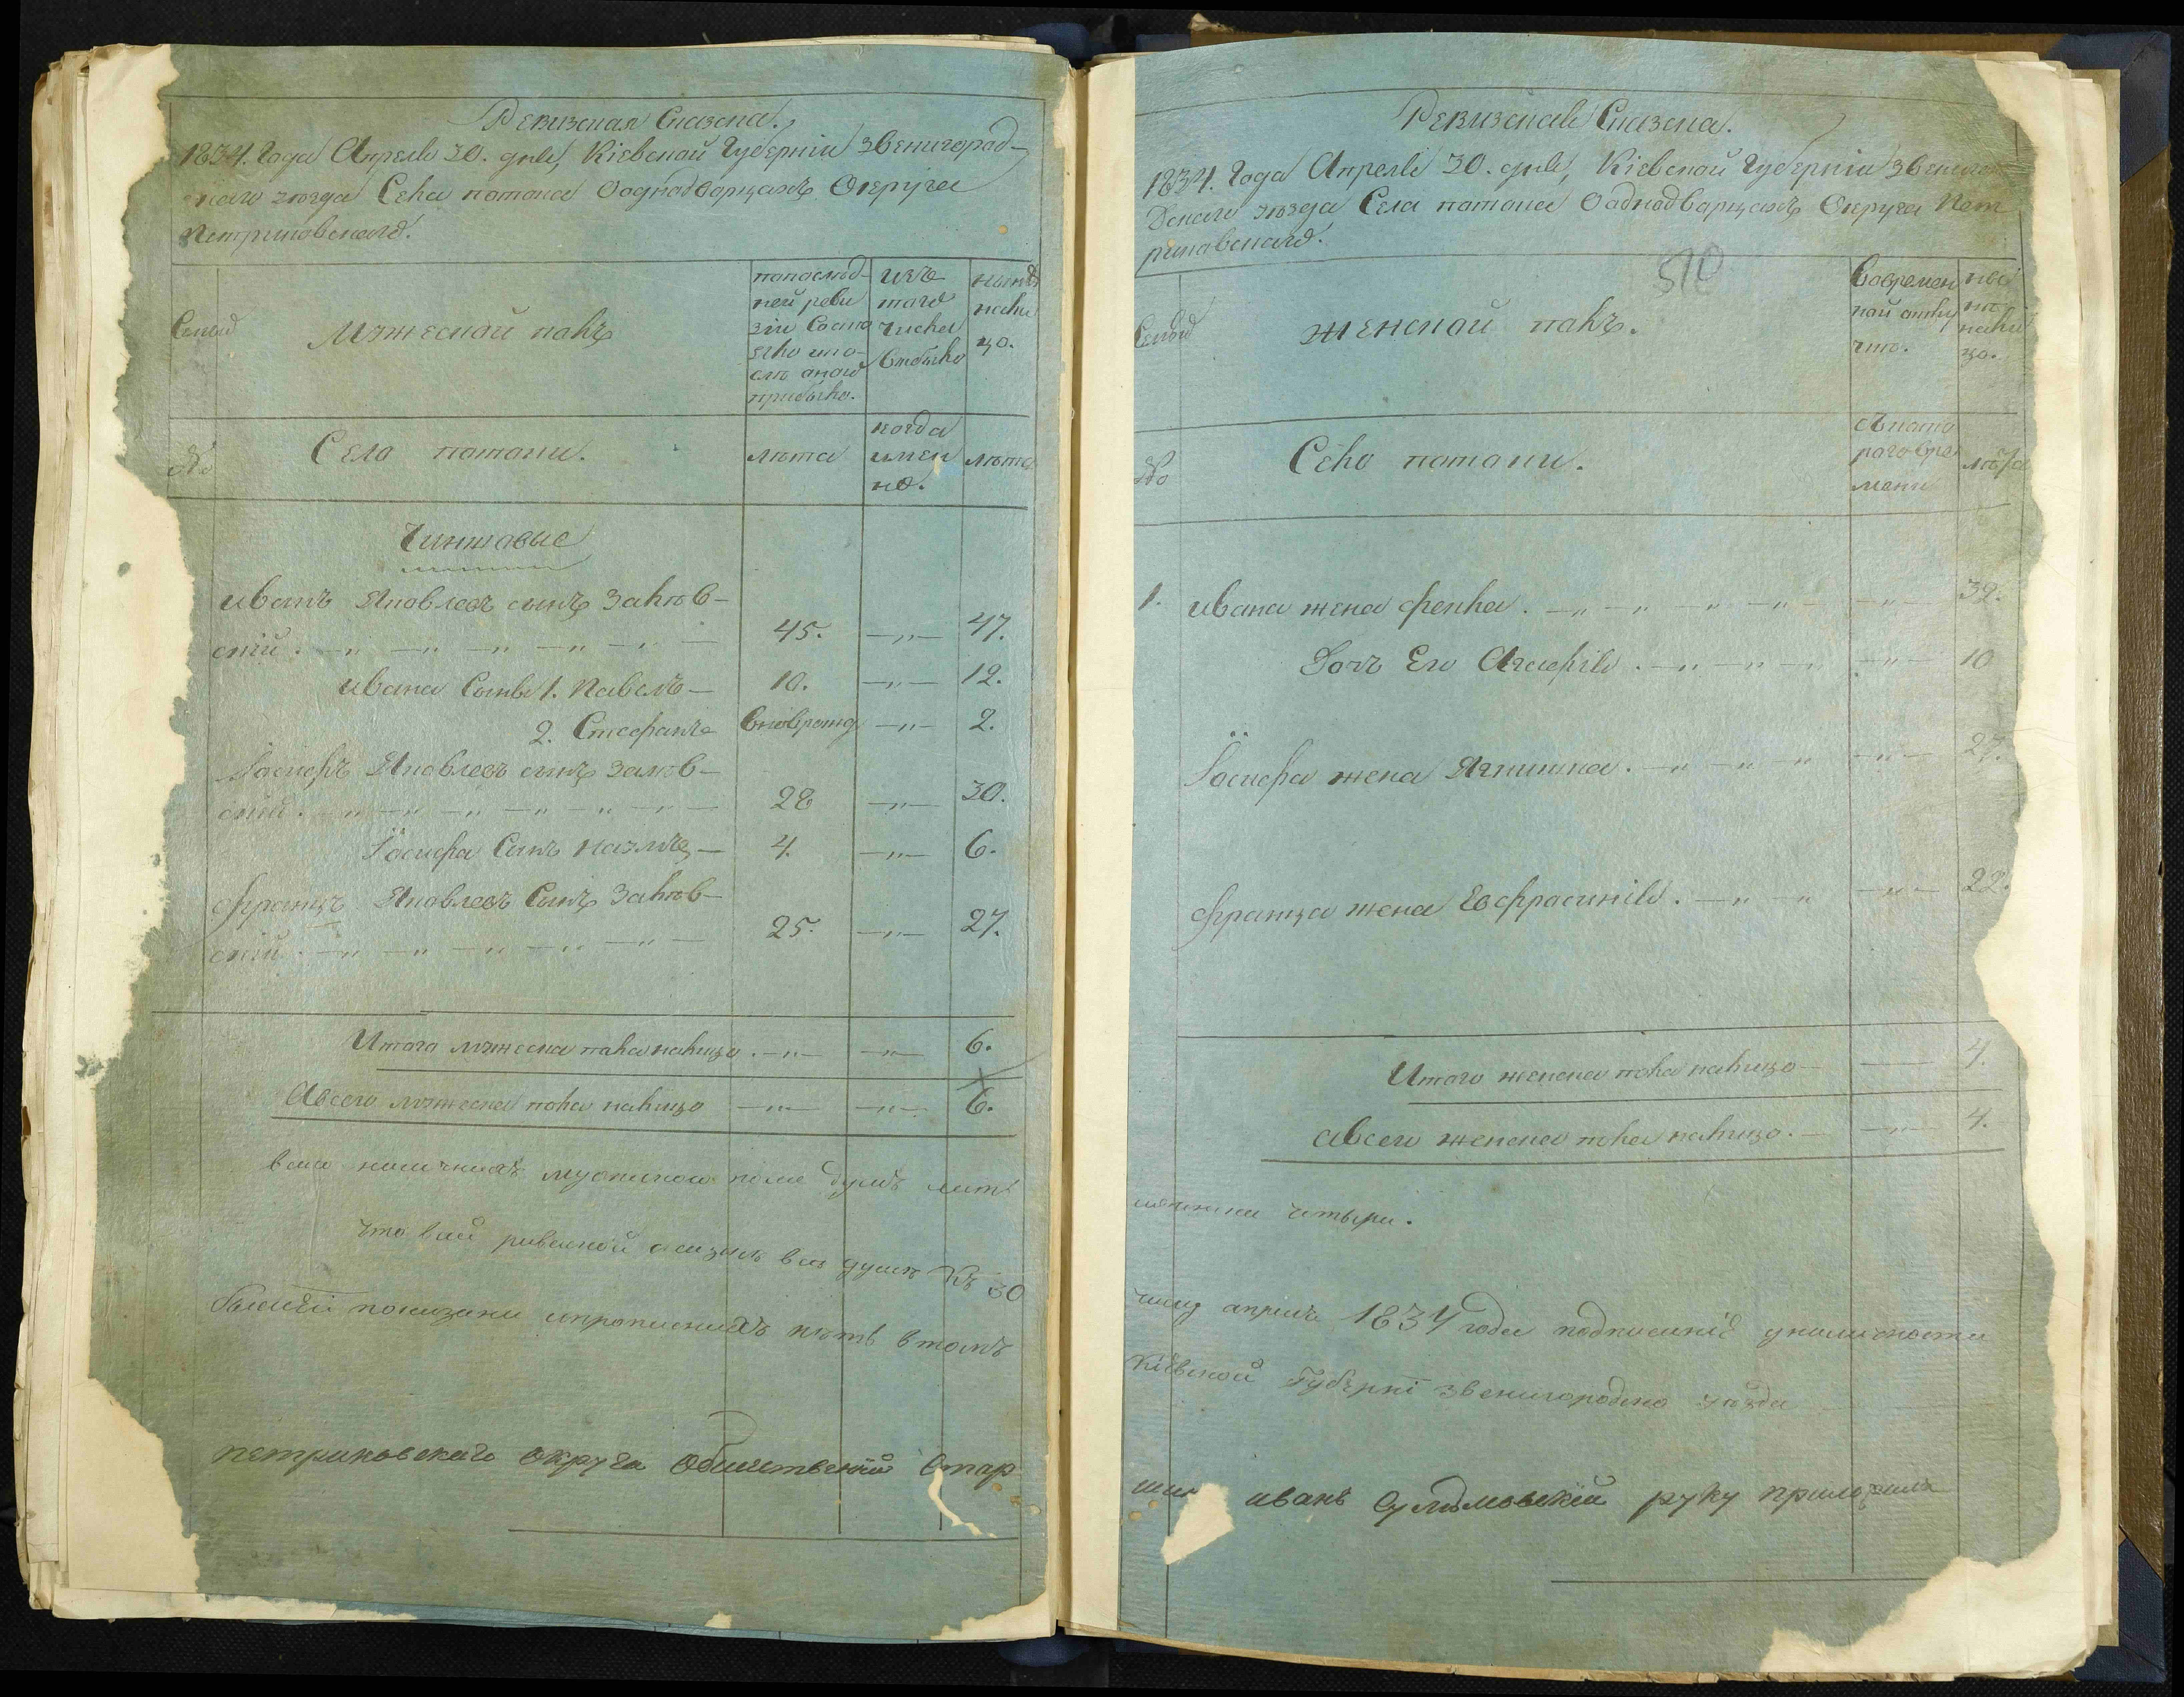 Ревизская Сказка.
1834. Года Апреля 30. дня, Кіевской Губерніи Звенигород-
скаго уезда Села потока Ооднодворцахъ Округа
Петриковскаго.
Семьи
Мужескои полъ
попослед-
ней реви
зіи Состо
яло ило-
слъ оной
прибыло.
изъ
того
числа
выбыло
ныне
нали
цо.
№
Села потоки.
лета
когда
имен
но.
лета
Чиншовые
иванъ Яковлевъ сынъ Залев-
скій . — " — " — " — " — " — 45. — " — 47.
ивана Сынъя 1. Павелъ — 10. — " — 12.
2. Стефанъ вновьрожд — " — 2.
Іосифъ Яковлевъ сынъ залев-
скій . — " — " — " — " — " — 28 — " — 30.
Іосифа Сынъ — 4. — " — 6.
францъ Яковлевъ Сынъ Залев-
скій . — " — " — " — " — " — 25. — " — 27.
Итого мужеска пола налицо . — " — — " — 6.
Авсего мужеска пола налицо — " — — " — 6.
наличнихъ поле душъ
что вией ревизкой сказки все души къ 30
показани ипрописнихъ нетъ втомъ
петриковскаго округа Обшественій Стар
Ревизская Сказка.
1834. Года Апреля 30. дня, Кіевской Губерніи Звениго
Дскаго уезда Села потока Ооднодворцахъ Округа Пет
риковскаго.
510
Семьи
женской полъ.
Вовремен
ной отлу
чке.
ны
не
нали
цо.
№
Село потоки.
съкото
раговре
мени
лета
1. ивана жена фенка . — " — " — " — " — — " — 39.
Дочь Его Агафія . — " — " — " — " — 10
Іосифа жена Ягнишка . — " — " — " — " — 27.
францa жена Ефросинія . — " — " — " — 22.
Итого женска пола налицо — — 4.
авсего женска пола налицо . — — " — 4.
четыри .
числу априля 1834 года подписаніе
Кіевской Губерні звенигородско уезда
иванъ руку приложилъ